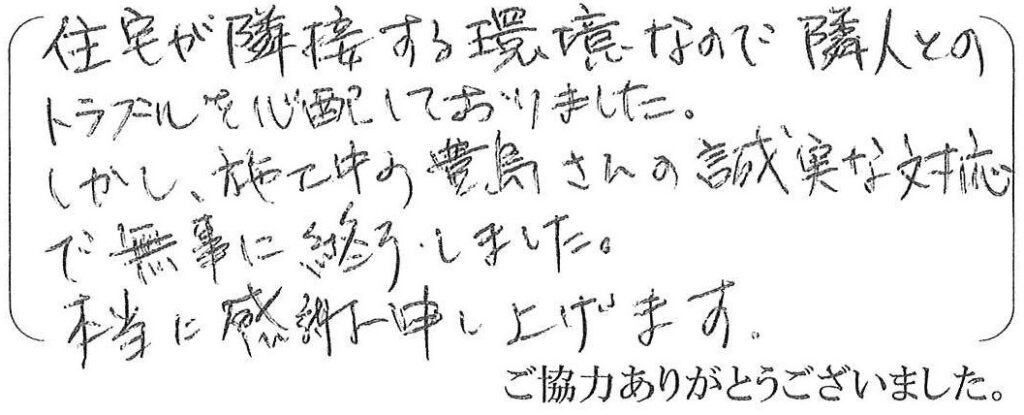 住宅が隣接する環境なので隣人との
トラブルを心配しておりました。
しかし、施工中の豊島さんの誠実な対応
で無事に終了しました。
本当に感謝申し上げます。
ご協力ありがとうございました。